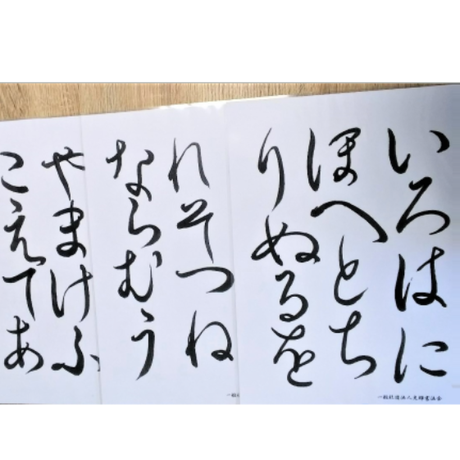 いろはに
ほへとち
りぬるを
一般社団法人
れそつね
ならむう
やまけふ
こえてあ